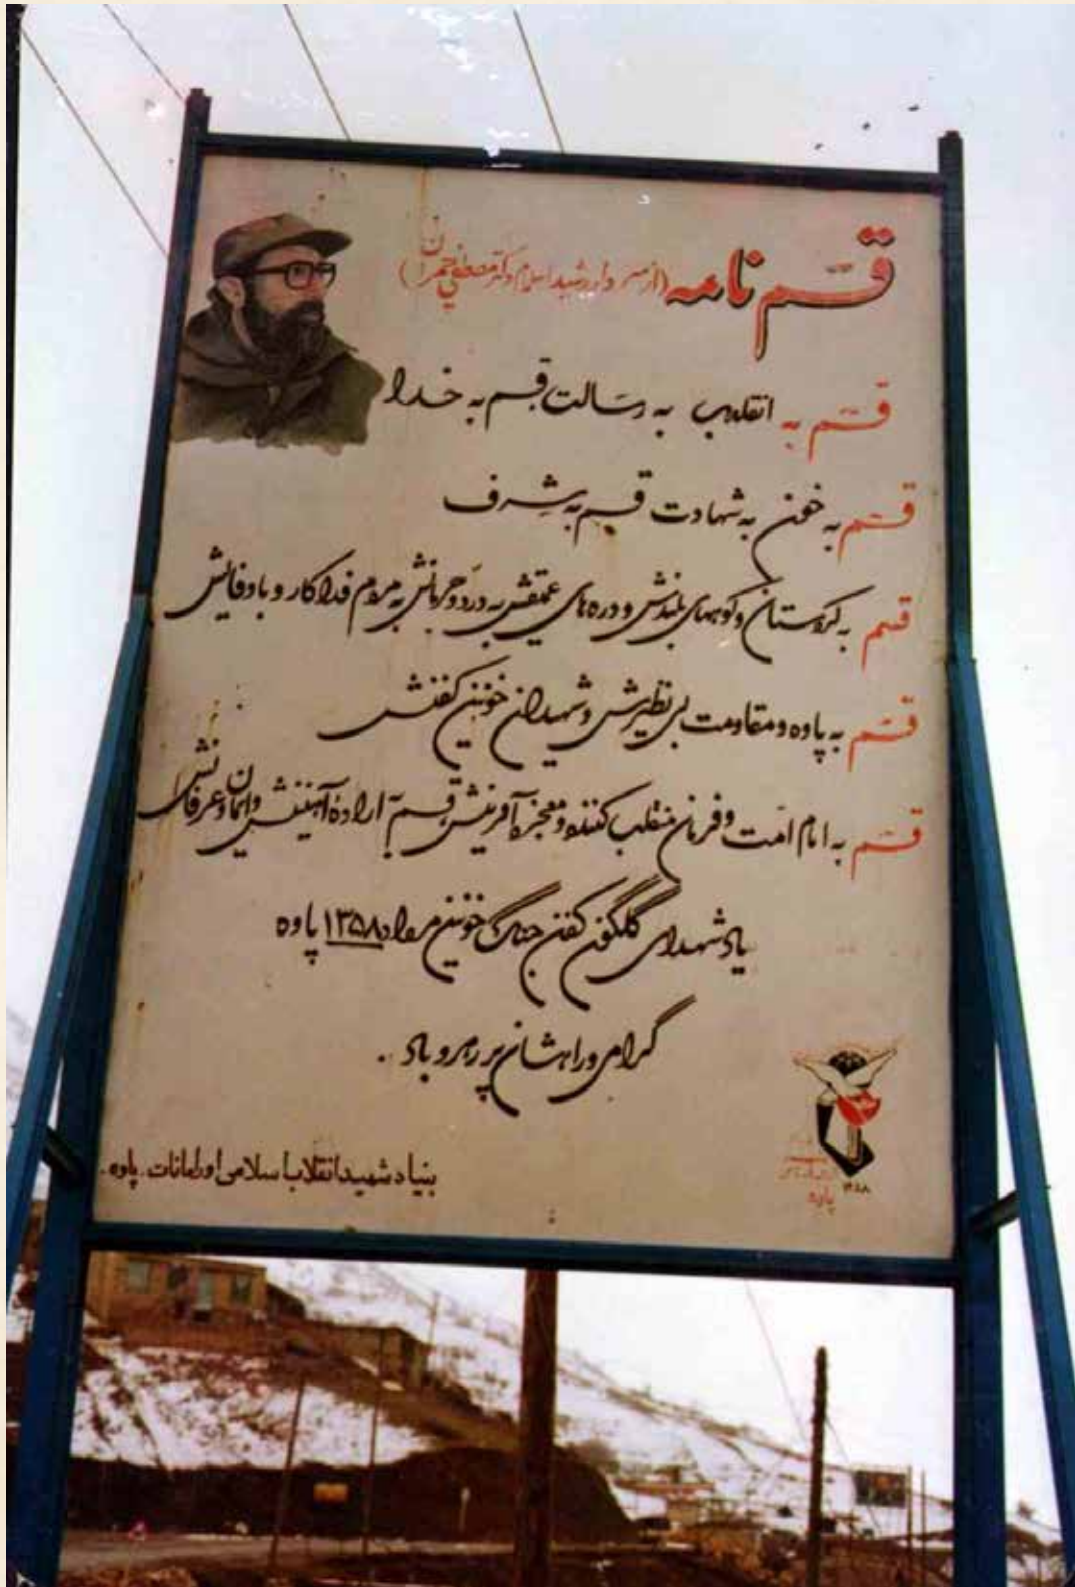 قسم نامه (از سردار شهید اسلام دکتر مصطفی چمران)
قسم به انقلاب به رسالت قسم به خدا
قسم به خون به شهادت قسم به شرف
قسم به کردستان و کوههای بلندش و دره های عمیقش به درد و حرمانش به مردم فداکار و باوفایش
قسم به پاوه و مقاومت بی نظیرش و شهیدان خونین کفنش
قسم به امام امت و فرمان منقلب کننده و معجزه آفرینش قسم به ارادهٔ آهنینش و ایمان و عرفانش
یاد شهدای گلگون کفن جنگ خونین مرداد ۱۳۵۸ پاوه
گرامی و راهشان پر رهرو باد.
بنیاد شهید انقلاب اسلامی اورامانات - پاوه
۱۳۵۸
پاوه